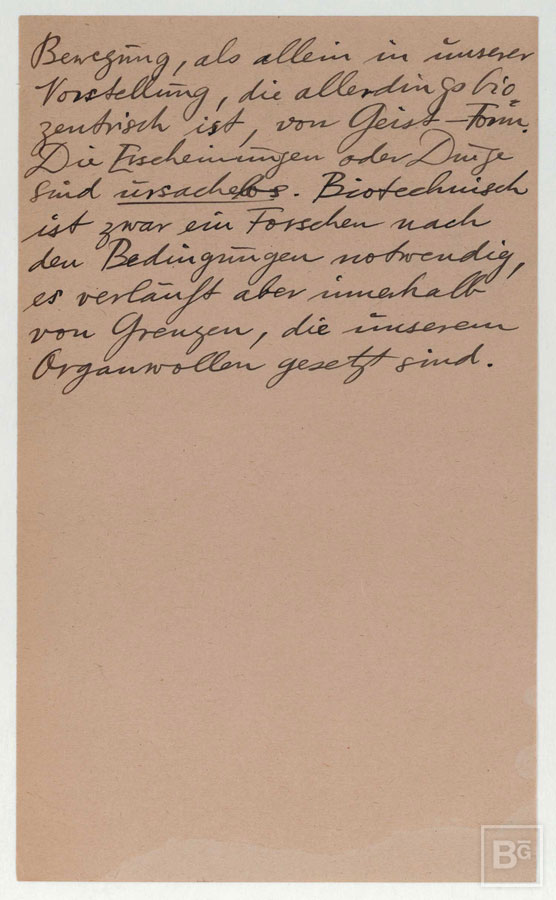 Bewegung, als allein in unserer
Vorstellung, die allerdings bio=
zentrisch ist, von Geist-Form.
Die Erscheinungen oder Dinge
sind ursachelos. Biotechnisch
ist zwar ein Forschen nach
den Bedingungen notwendig,
es verläuft aber innerhalb
von Grenzen, die unserem
Organwollen gesetzt sind.
BG